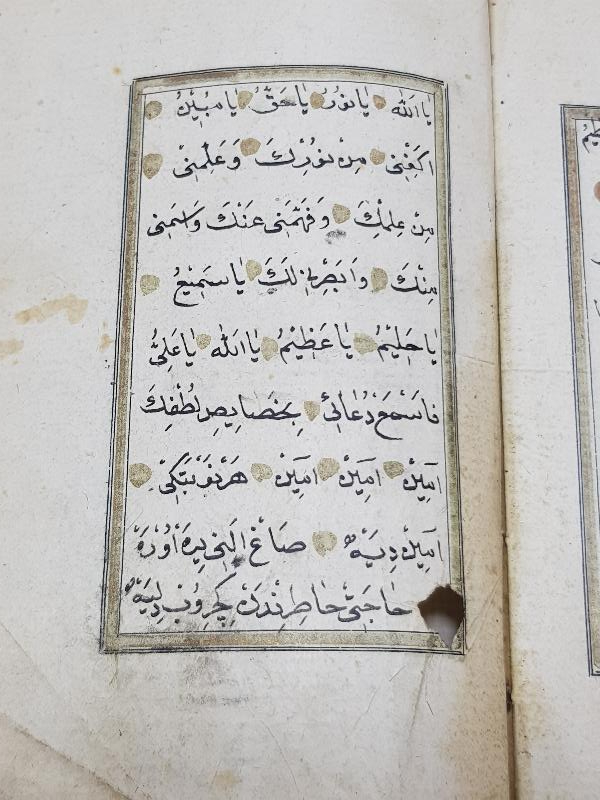 يَا اَللّٰهُ يَا نُورُ يَا حَقُّ يَا مُبِيْنُ
اَكِفْنِى مِنْ نُوْرِكَ وَعَلِّمْنِى
مِنْ عِلْمِكَ وَفَهِّمْنِى عَنْكَ وَاسْمَعْنِى
مِنْكَ وَاَبْصِرْنِى لَكَ يَا سَمِيْعُ
يَا حَلِيْمُ يَا عَظِيْمُ يَا اَللّٰهُ يَا عَلِىُّ
فَاسْمَعْ دُعَائِى بِخَصَايِصِ لُطْفِكَ
اٰمِيْنْ اٰمِيْنْ اٰمِيْنْ هَرْ نَوْبَتْكِى
اٰمِيْنْ دِيَهْ صَاغْ اَلِنِى يِرَهْ اُوْرَهْ
حَاجَتِى خَاطِرِنْدَنْ كَچُرُوبْ دِلِيَهْ